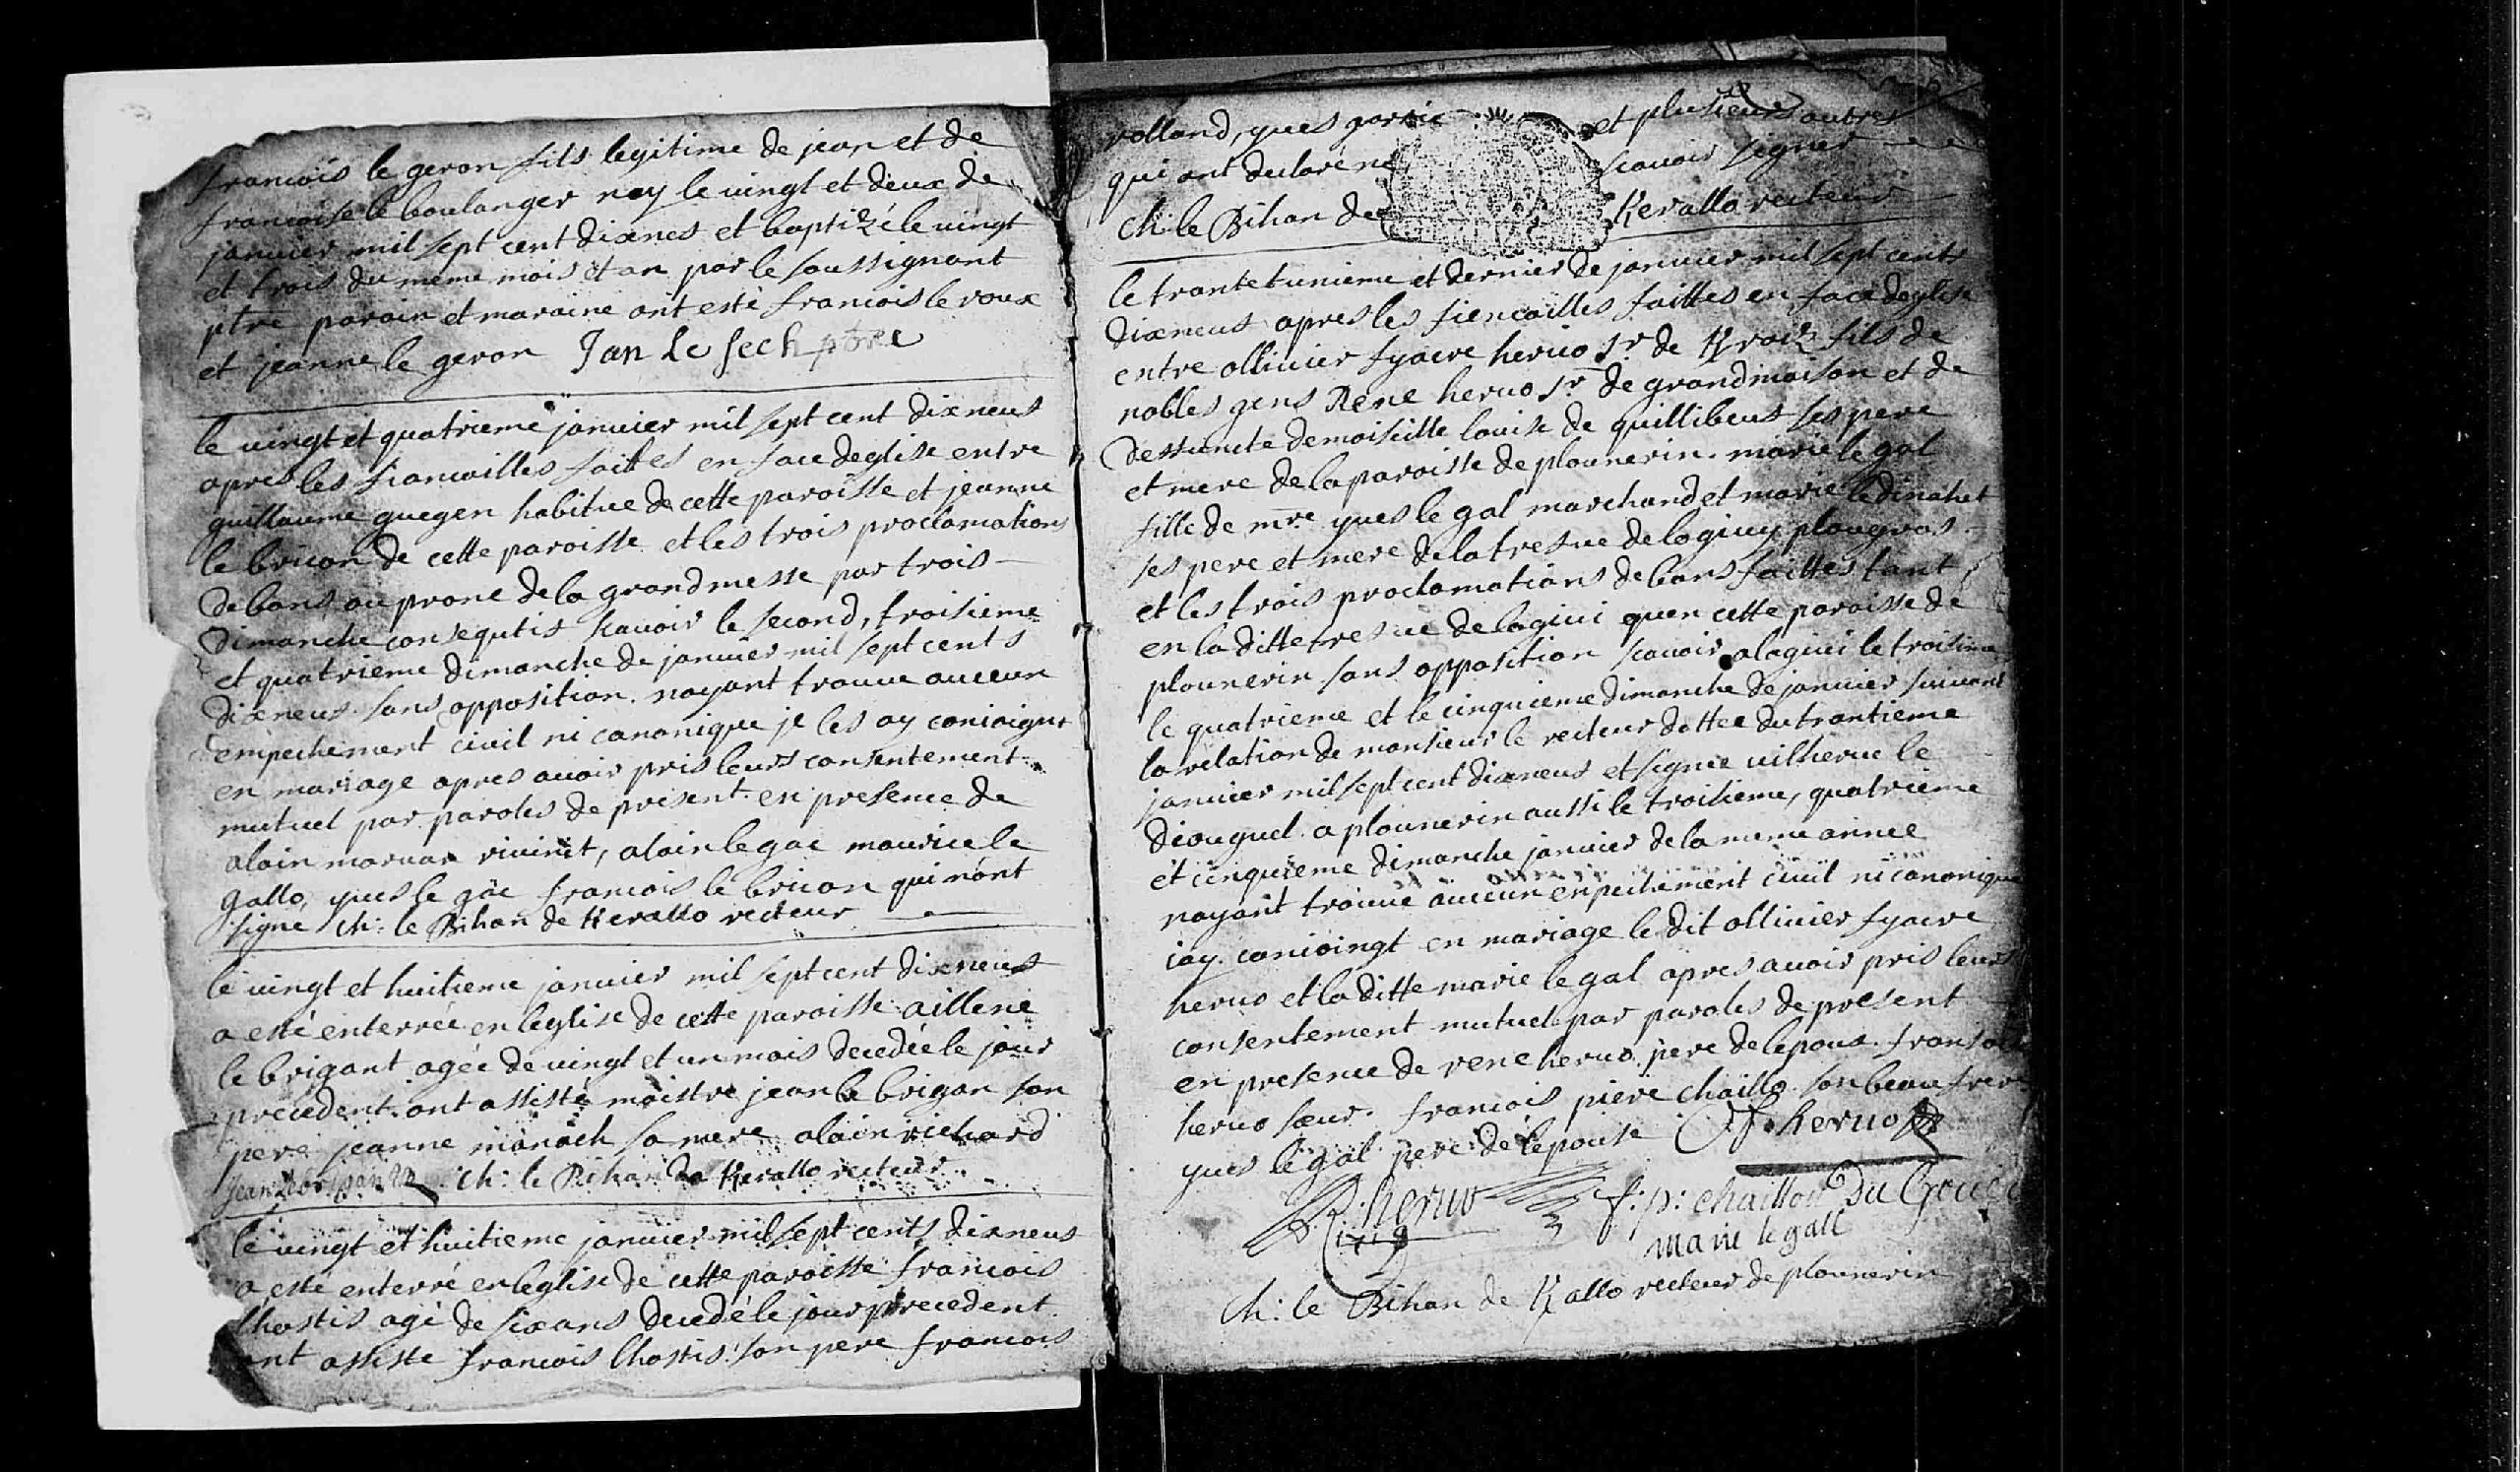 francois le geron fils legitime de jean et de
francoise le boulanger nay le vingt et deux de
januier mil sept cent dixneus et baptizé le uingt
et trois du meme mois et an par le soussignant
ptre parain et maraine ont esté francois le roux
et jeanne le geron Jan Le sech ptre
le uingt et quatrieme januier mil sept cent dixneus
apres les fiancailles faittes en face deglise entre
guillaume guegen habitue de cette paroisse et jeanne
le bricon de cette paroisse et les trois proclamations
de bans au prone de la grandmesse par trois
dimanche consequtis scauoir le second, troisieme
et quatrieme dimanche de januier mil sept cents
dixneus sans opposition. nayant trouue auceun
empechement ciuil ni canonique je les ay conioignt
en mariage apres auoir pris leurs consentement
mutuel par paroles de present en presence de
alain maruan , alain le gac maurice le
gallo, yues le gac francois le bricon qui n'ont
signe ch: le Bihan de Kerallo recteur
le uingt et huitieme januier mil sept cent dixneus
a esté enterrée en leglise de cette paroisse aillene
le brigant agée de uingt et un mois decedée le jour
precedent. ont assisté maistre jean le brigan son
pere jeanne manach sa mere alain richard
jean le brigant ch: le Bihan de Kerallo recteur
le uingt et huitieme januier mil sept cents dixneus
a esté enterré en leglise de cette paroisse francois
lhostis agé de six ans decedé le jour precedent
ont assiste francois lhostis son pere francois
rolland, yues et plusieurs autres
qui ont declaré ne scauoir signer
ch: le Bihan de Kerallo recteur
le trantetunieme et dernier de januier mil sept cents
dixneus apres les fiencailles faittes en face deglise
entre olliuier fyacre heruo sr de fils de
nobles gens Rene heruo sr de grandmaison et de
deffuncte demoiselle louise de quillibeus ses pere
et mere de la paroisse de plounerin. marie le gal
fille de mre yues le gal marchand et marie ledinahet
ses pere et mere de la tresue de loguiuy plougras
et les trois proclamations de bans faittes tant
en la ditte tresue de loguiui quen cette paroisse de
plounerin sans opposition scauoir a loguiui le troisieme
le quatrieme et le cinquieme dimanche de januier suiuant
la relation de monsieur le recteur dattee du trantieme
januier mil sept cent dixneus et signée le
diouguel. a plounerin aussi le troisieme, quatrieme
et cinquieme dimanche januier de la meme annee
nayant trouue auceun enpechement ciuil ni canonique
iay conioingt en mariage le dit olliuier fyacre
heruo et la ditte marie le gal apres auoir pris leurs
consentement mutuel par paroles de present
en presence de rene heruo pere de lepoux.
heruo sœur. francois piere chaillo son beau frere
yues le gal pere de lepouse O f heruo
R: heruo f: p: chaillou Du
marie le gall
ch: le Bihan de Kallo recteur de plounerin